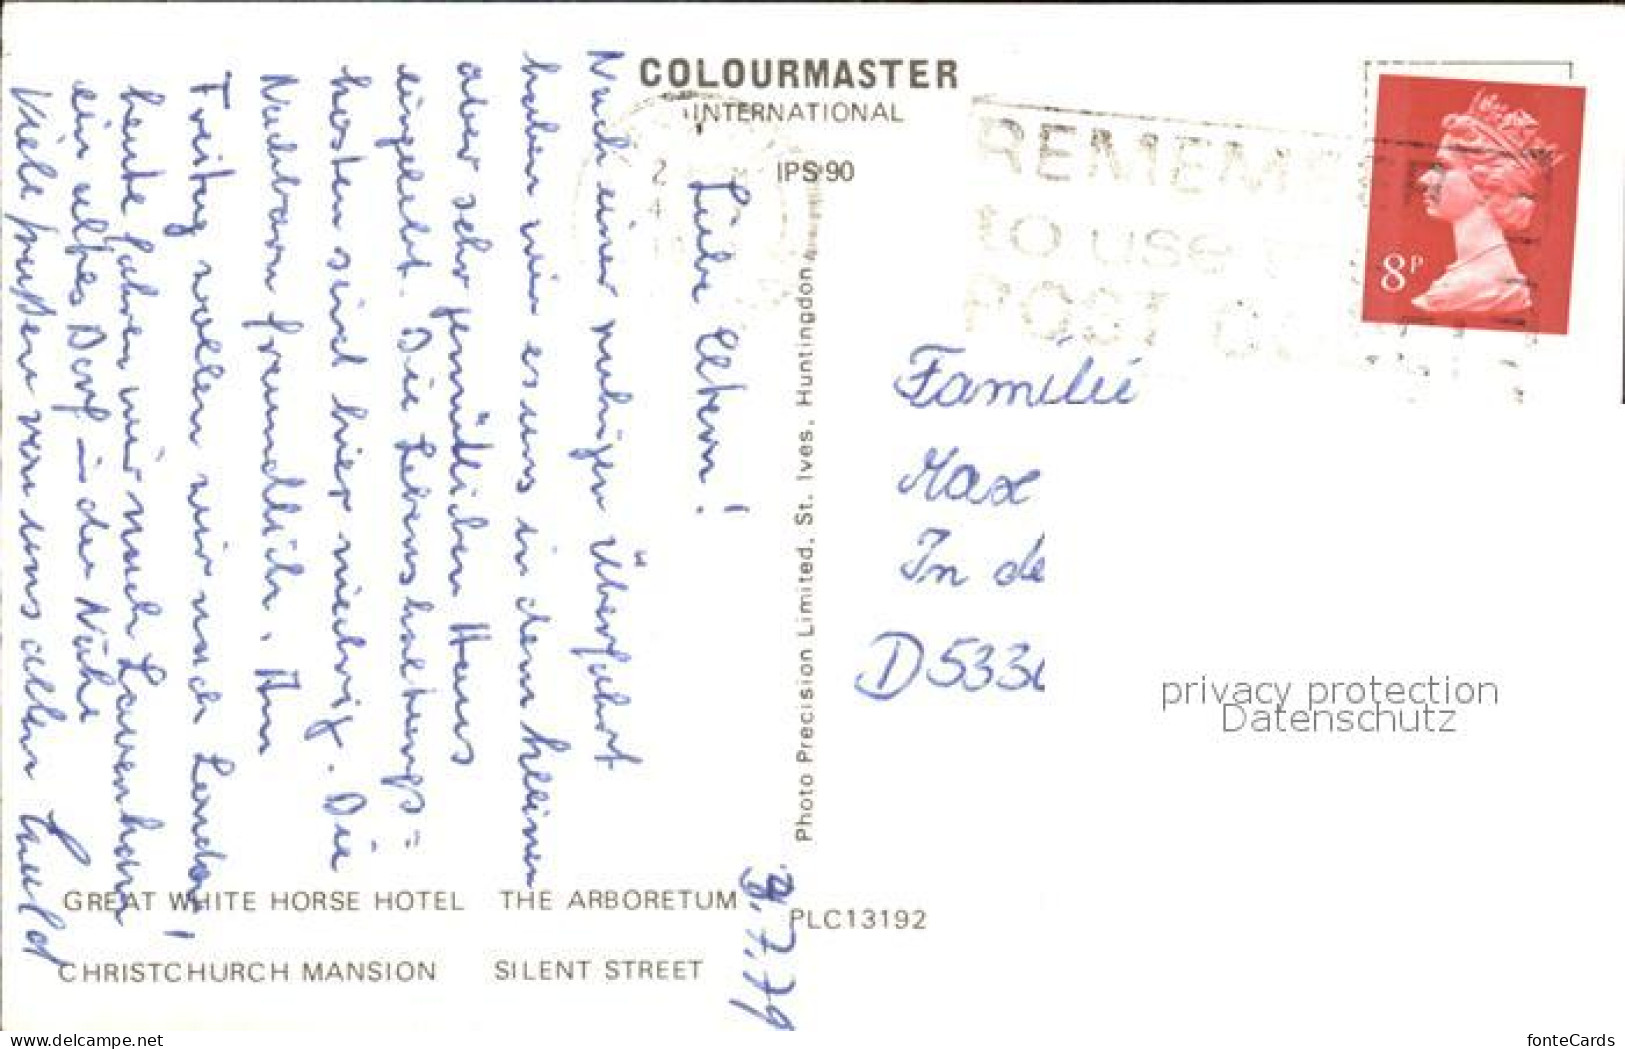 COLOURMASTER
INTERNATIONAL
IPS 90
Photo Precision Limited, St. Ives, Huntingdon
PLC13192
GREAT WHITE HORSE HOTEL THE ARBORETUM
CHRISTCHURCH MANSION SILENT STREET
REMEM
to use
POST CO
8P
9.7.79
Liebe Eltern!
Nach einer ruhigen Überfahrt
haben wir es uns in dem kleinen
aber sehr gemütlichen Haus
eingelebt. Die Lebenshaltungs=
kosten sind hier niedrig. Die
Nachbarn freundlich. Am
Freitag wollen wir nach London!
heute fahren wir nach Lavenham
ein altes Dorf in der Nähe
Viele grüßen von uns allen
Familie
Max
In de
D 533
privacy protection
Datenschutz
www.delcampe.net
fonteCards